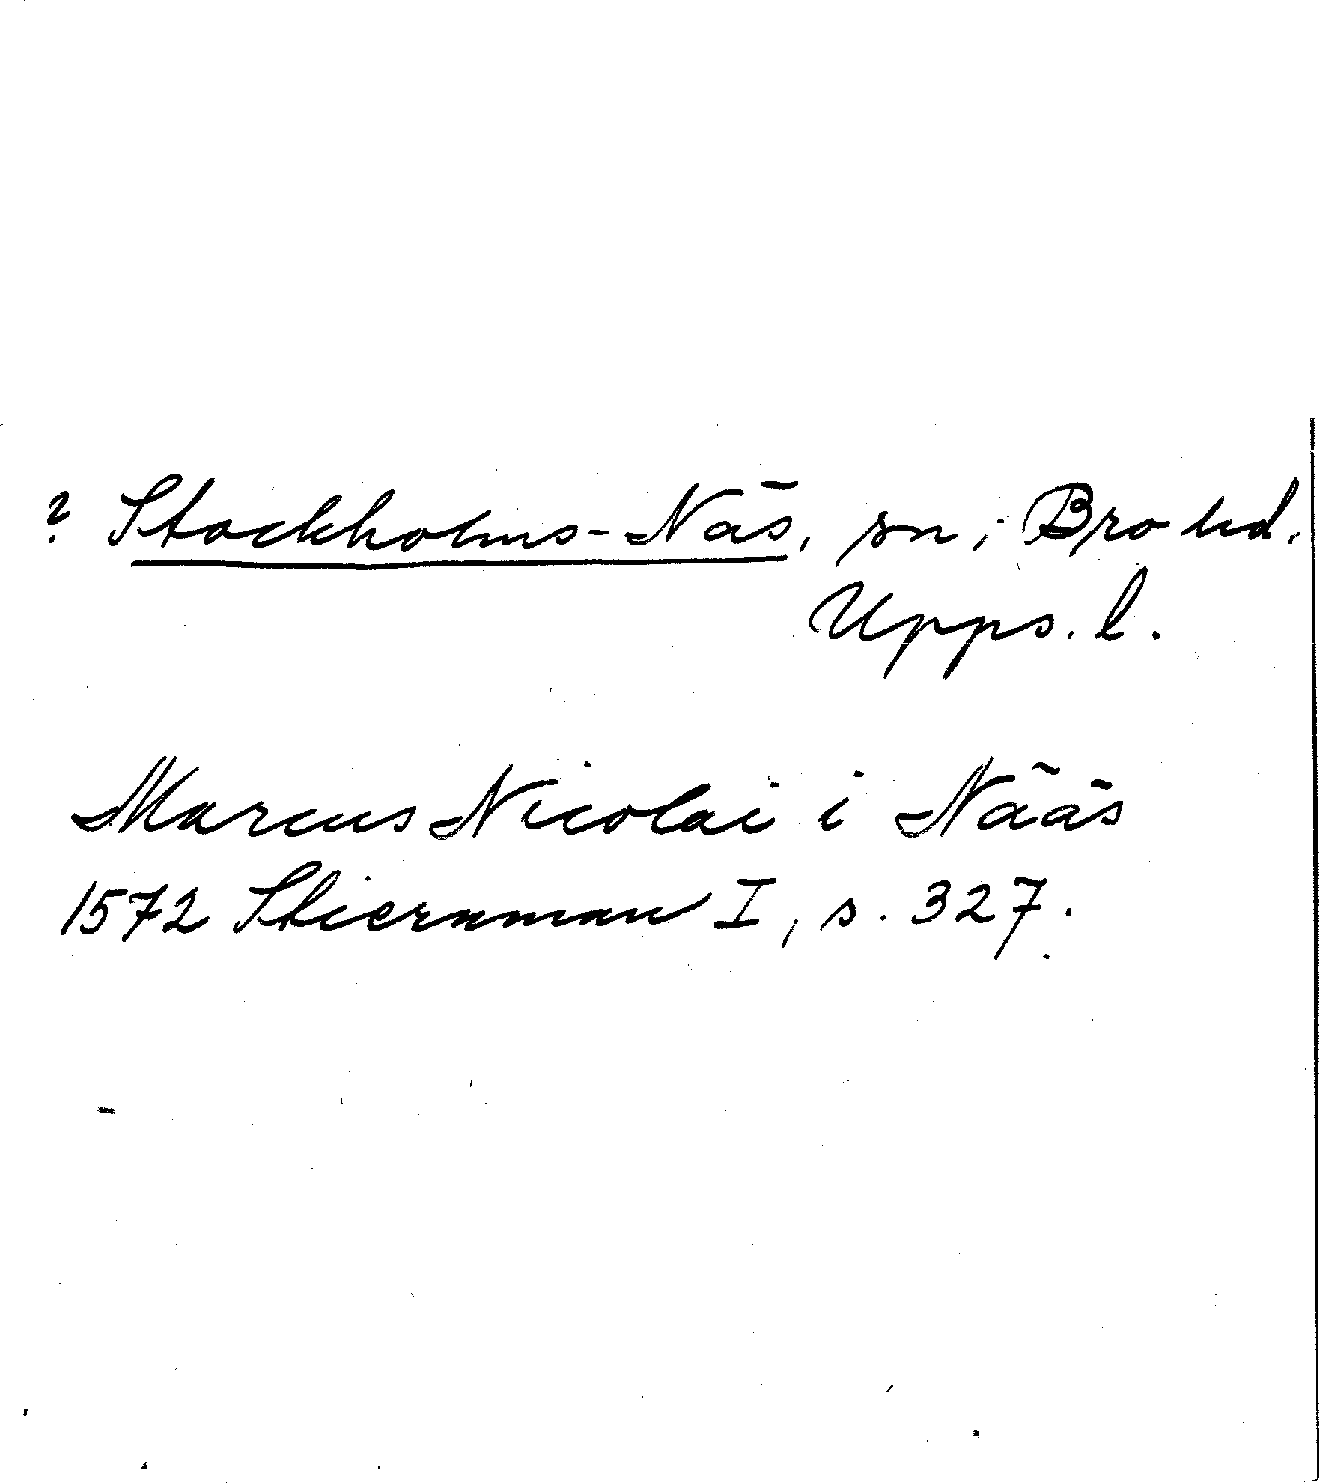 ? Stockholms-Näs, sn, Bro hd.
Upps. l.
Marcus Nicolai i Nääs
1572 Stiernman I, s. 327.